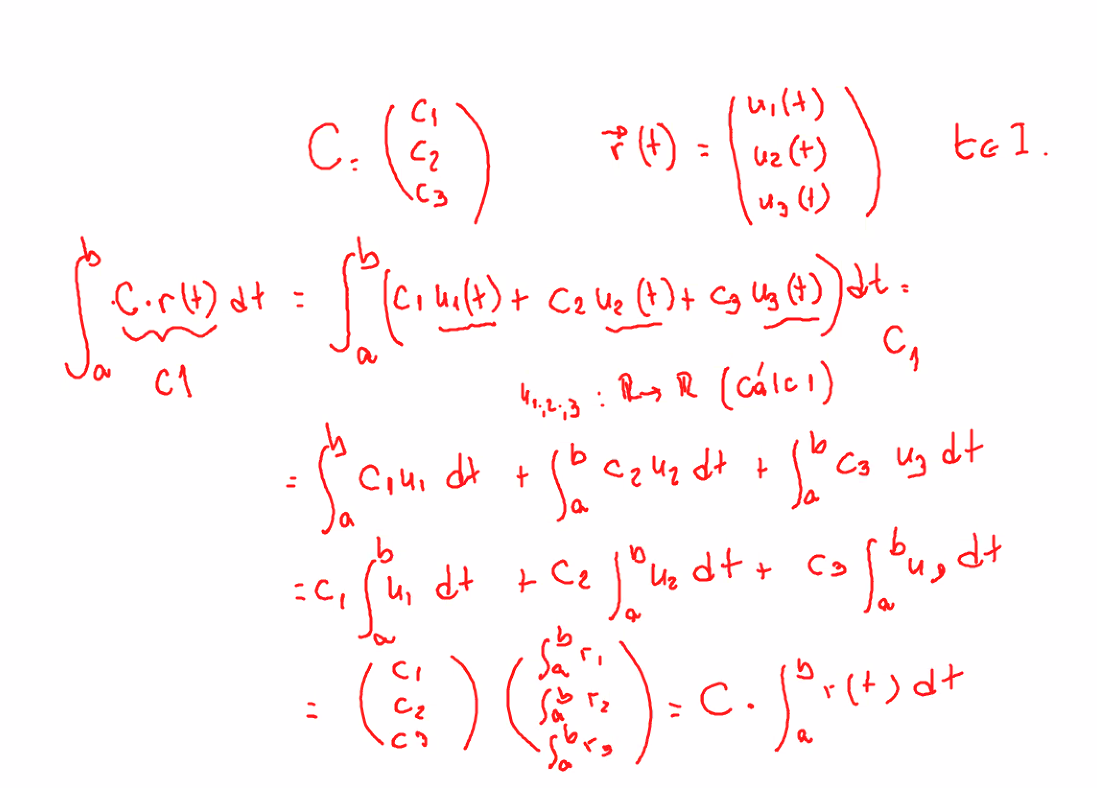 C = (c1 c2 c3) r⃗(t) = (u1(t) u2(t) u3(t)) t∈I.
∫_a^b C·r(t) dt = ∫_a^b (c1 u1(t) + c2 u2(t) + c3 u3(t)) dt =
C1 C1
u1,2,3 : ℝ→ℝ (Cálc1)
= ∫_a^b c1 u1 dt + ∫_a^b c2 u2 dt + ∫_a^b c3 u3 dt
= c1 ∫_a^b u1 dt + c2 ∫_a^b u2 dt + c3 ∫_a^b u3 dt
= (c1 c2 c3) (∫_a^b r1 ∫_a^b r2 ∫_a^b r3) = C · ∫_a^b r(t) dt